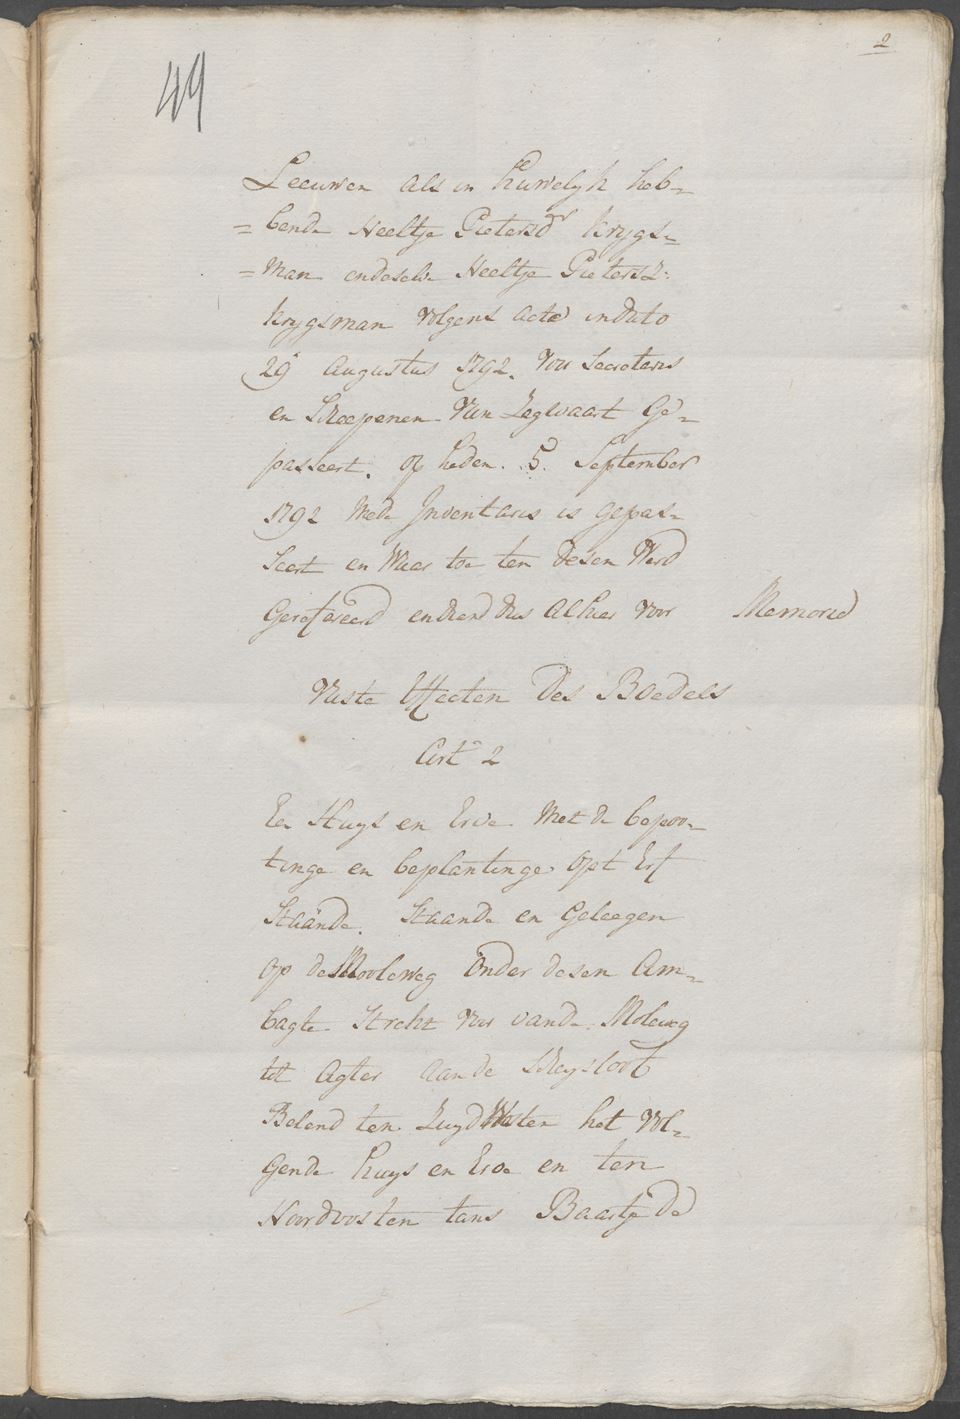 2
49
Leeuwen als in Huwelyk heb=
= bende Neeltje Pietersdr Krygs=
= man en deselve Neeltje Pietersz:
Krygsman volgens acte in dato
29 Augustus 1792. voor Secretaris
en Scheepenen van Zegwaart Ge=
passeert. op heden. 5. September
1792 Mede Inventaris is gepas=
seert en Waar toe ten desen Werd
Gerefereerd en diend dus alhier voor Memorie
Vaste Effecten des Boedels
Art 2
Een Huys en Erve Met de bepoo=
tinge en beplantinge opt Erf
Staande. Staande en Geleegen
op de Mooleweg onder desen Am=
bagte Strekt voor vande Moleweg
tot Agter aan de Scheysloot
Belend ten ZuydWesten het vol=
gende Huys en Erve en ten
Noordoosten tans Baartje de